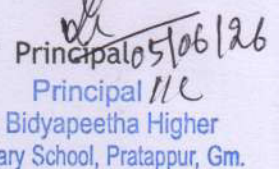 Principal 05/06/26
Principal I/C
Bidyapeetha Higher
ary School, Pratappur, Gm.